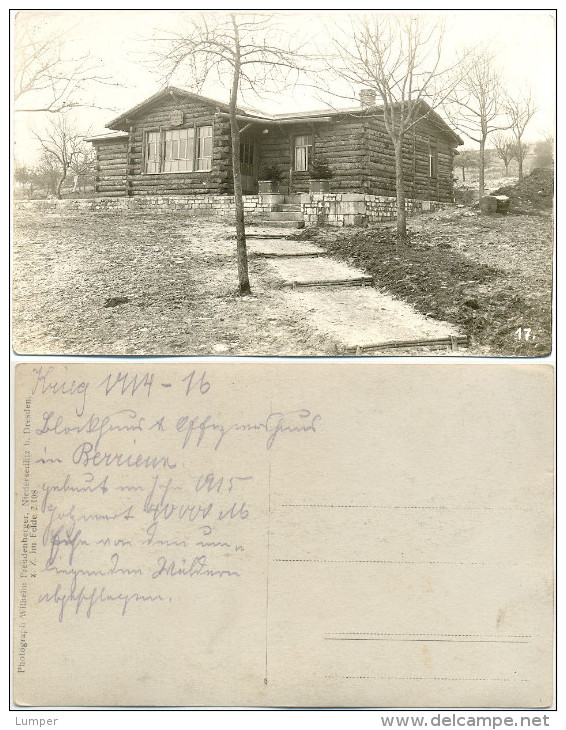 17.
Krieg 1914-16
Blockhaus & Offiziershaus
in Berrieux
gebaut im Jahr 1915
Holzwert 40000 M
von den um-
liegenden Wäldern
abgeschlagen.
Photograph Wilhelm Freudenberger, Niedersedlitz b. Dresden,
z. Z. im Felde 2.108
Lumper
www.delcampe.net